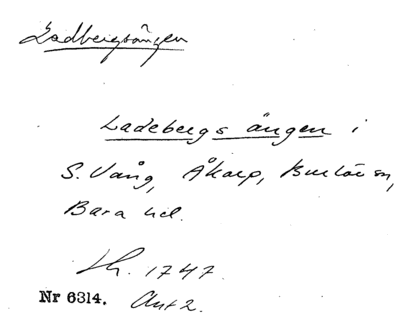 Ladbergsängen
Ladebergs ängen i
S. Vång, Åkarp, Burlöv sn,
Bara hd.
Lh. 1747.
Nr 6314. Akt 2.